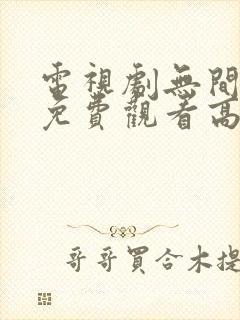 電視劇無間
免費觀看高
哥哥買合木提